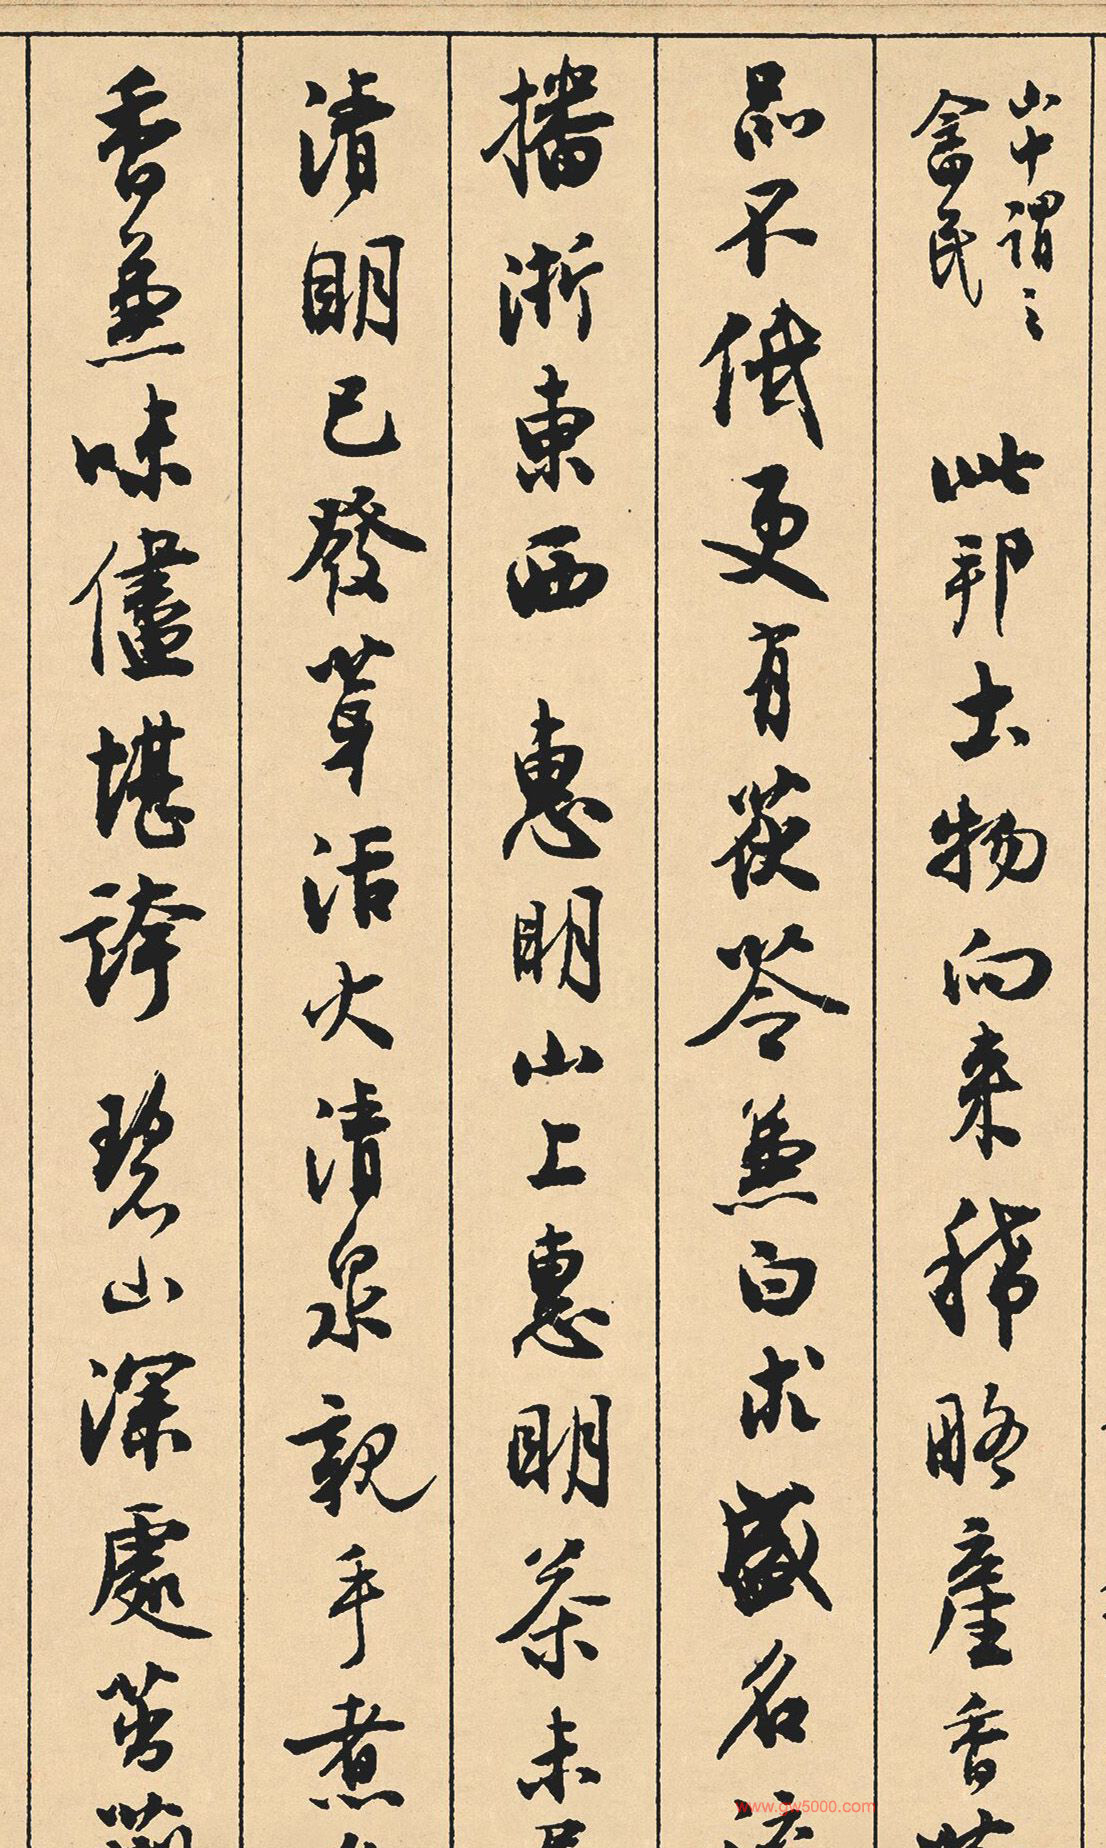 山中謂之
畲民
此邦土物向来稀略產香
品不低更有茯苓兼白术盛名
播浙東西 惠明山上惠明茶未
清明已發芽活火清泉親手煮
香兼味儘堪誇 碧山深處
www.gw5000.com